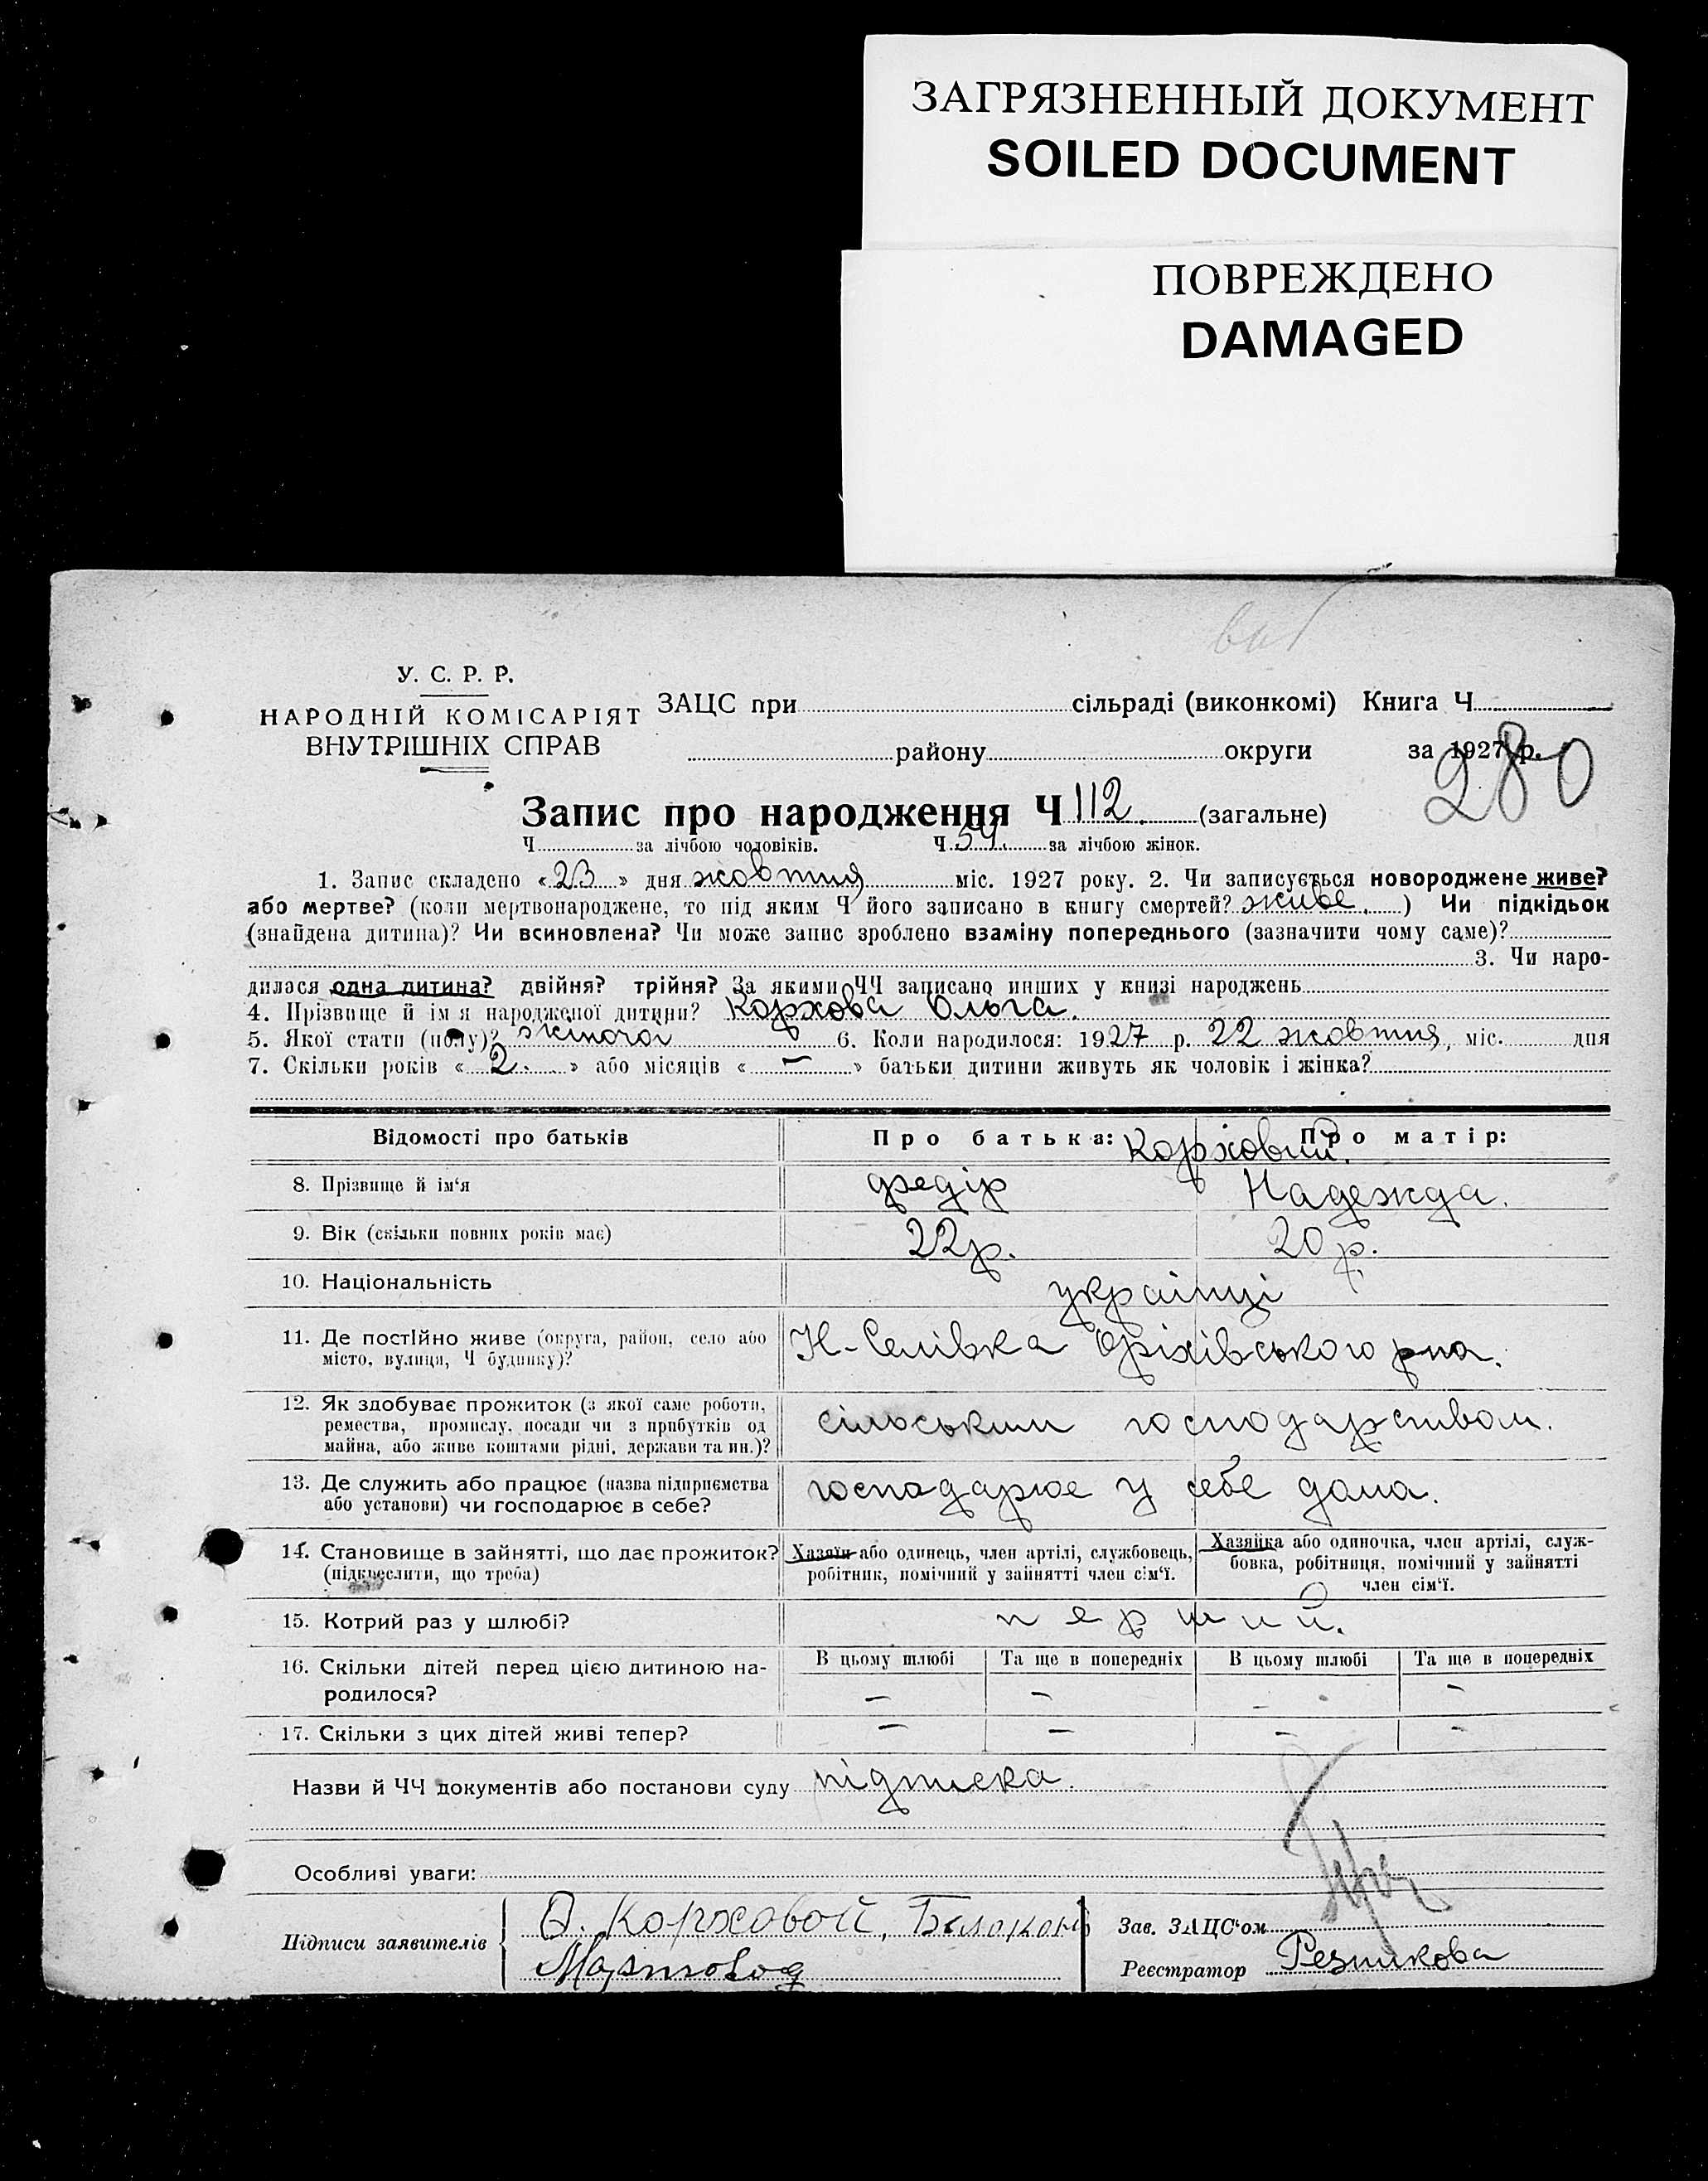 ЗАГРЯЗНЕННЫЙ ДОКУМЕНТ
SOILED DOCUMENT
ПОВРЕЖДЕНО
DAMAGED
У. С. Р. Р.
НАРОДНІЙ КОМІСАРІЯТ
ВНУТРІШНІХ СПРАВ
ЗАЦС при сільраді (виконкомі) Книга Ч
району округи за 1927 р.
280
Запис про народження Ч 112. (загальне)
Ч за лічбою чоловіків. Ч 54. за лічбою жінок.
1. Запис складено «23» дня жовтня міс. 1927 року. 2. Чи записується новороджене живе?
або мертве? (коли мертвонароджене, то під яким Ч його записано в книгу смертей? живе.) Чи підкідьок
(знайдена дитина)? Чи всиновлена? Чи може запис зроблено взаміну попереднього (зазначити чому саме)?
3. Чи наро-
дилася одна дитина? двійня? трійня? За якими ЧЧ записано инших у книзі народжень
4. Прізвище й ім'я народженої дитини? Коржова Ольга.
5. Якої стати (полу)? жіночої 6. Коли народилося: 1927 р. 22 жовтня, міс. дня
7. Скільки років «2.» або місяців «—» батьки дитини живуть як чоловік і жінка?
Відомості про батьків Про батька: Про матір:
Коржовий.
8. Прізвище й ім'я Федір Надежда.
9. Вік (скільки повних років має) 22 р. 20 р.
10. Національність українці
11. Де постійно живе (округа, район, село або Н-Селівка Оріхівського р-на.
місто, вулиця, Ч будинку)?
12. Як здобуває прожиток (з якої саме роботи, сільським господарством.
ремества, промислу, посади чи з прибутків од
майна, або живе коштами рідні, держави та ин.)?
13. Де служить або працює (назва підприємства господарює у себе дома.
або установи) чи господарює в себе?
14. Становище в зайнятті, що дає прожиток? Хазяїн або одинець, член артілі, службовець, Хазяйка або одиночка, член артілі, служ-
(підкреслити, що треба) робітник, помічний у зайнятті член сім'ї. бовка, робітниця, помічний у зайнятті
член сім'ї.
15. Котрий раз у шлюбі? перший.
16. Скільки дітей перед цією дитиною на- В цьому шлюбі Та ще в попередніх В цьому шлюбі Та ще в попередніх
родилося? — — — —
17. Скільки з цих дітей живі тепер? — — — —
Назви й ЧЧ документів або постанови суду підписка.
Особливі уваги:
Підписи заявителів Коржовой, Білоконь Зав. ЗАЦС'ом
Реєстратор Резникова